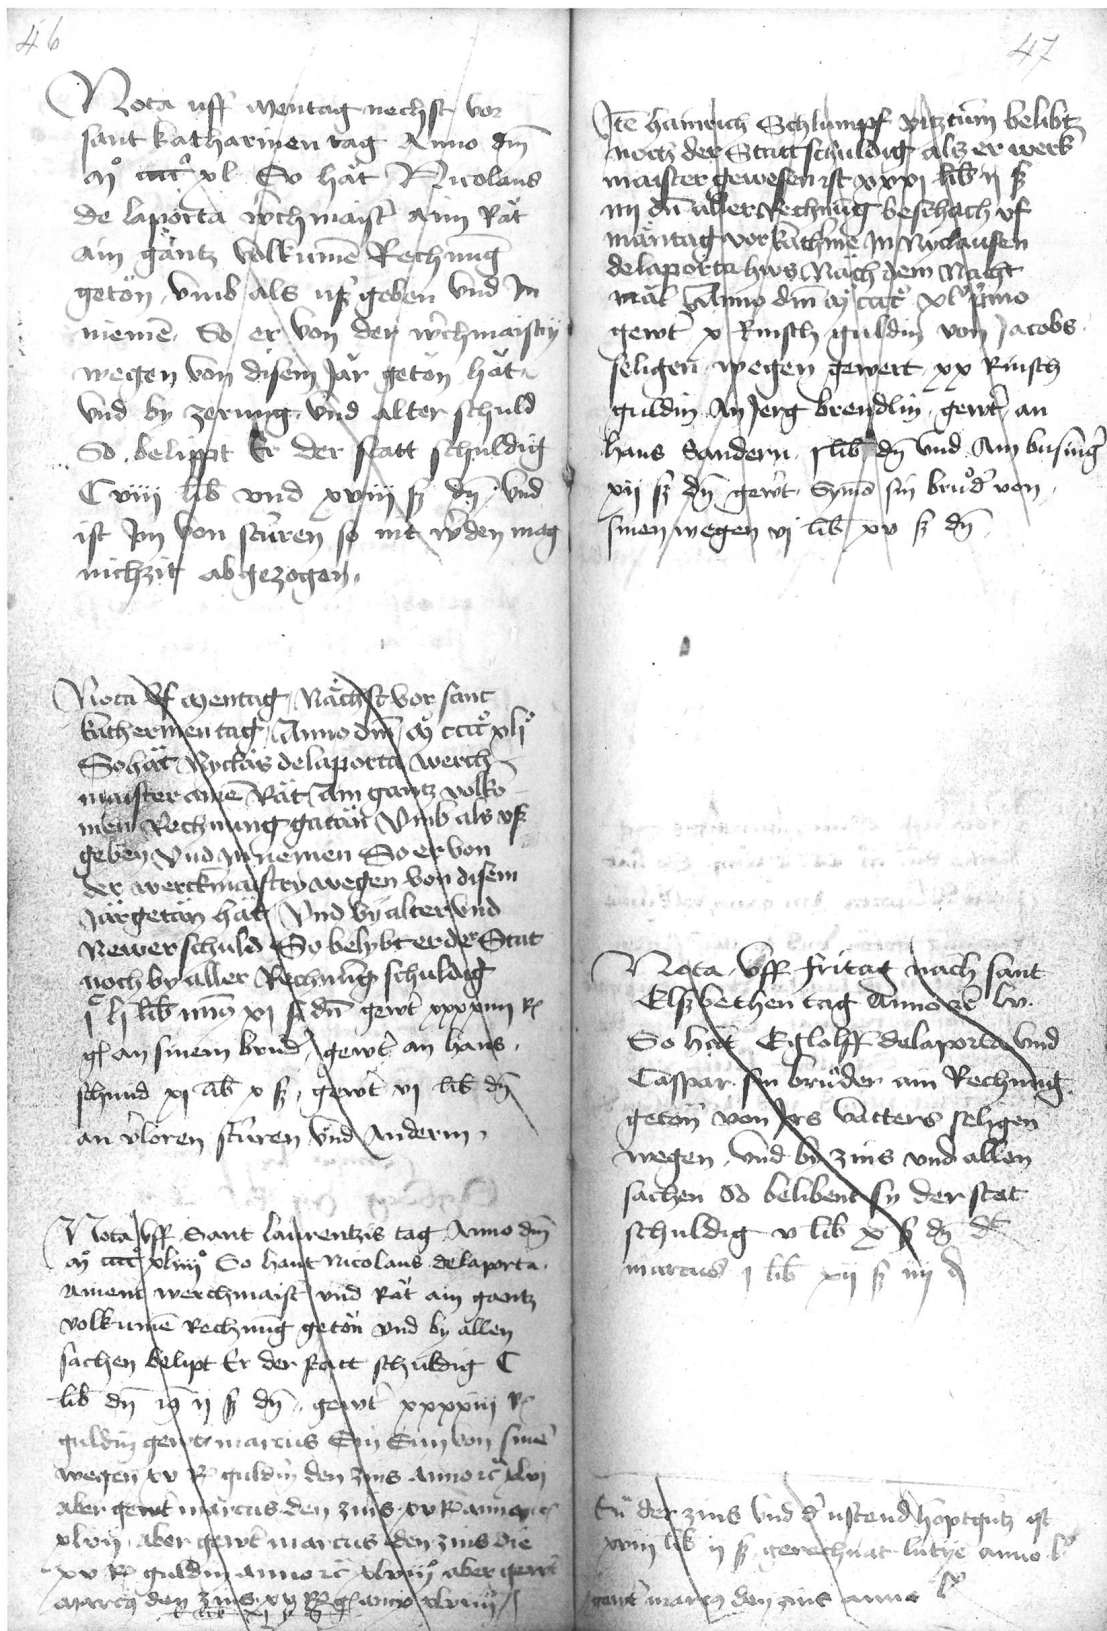 46
Nota uff mentag nechst vor
sant katharinen tag Anno dm̄
mº ccccº xl So hät Nicolaus
de laporta wchmaist aim Rät
ain gäntz volkumē Rechnung
getön, vmb als usz geben vnd In
niemē. So er von der wchmaistry
wegen von disem Jär getön hät.
vnd by zerung vnd alter schuld
So belippt Er der statt schuldig
C viiii lib vnd xviii sz dn̄ vnd
ist Im von stüren so nit wden mag
nichzit abgezogen.
Nota vf mentag Nächst vor sant
katherinen tag Anno dm̄ mº ccccº xliº
So hät Nyclas delaporta werch
maister ainē Rät ain gantz volko
men Rechnung getän vmb als vsz
geben vnd Innemen So er von
der werckmaistry wegen von disem
Jär getän hät vnd by alter vnd
Newer schuld So belybt er der Stat
noch by aller Rechnūg schuldig
li lib xi sz dn̄ gewt xxxxiiii R
gl an sinem brud, gewt an hans
schmid xi lib v sz, gewt vi lib dn̄
an vloren stüren vnd anderm.
Nota vff Sant laurentzis tag Anno dm̄
mº ccccº xliiiiº So haut Nicolaus delaporta
Ament werchmaist vnd Rät ain gantz
volkumē Rechnūg getön vnd by allen
sachen belipt Er der statt schuldig C
lib dn̄ ii sz dn̄, gewt xxxxiii R
guldin gewt marcus von sinē
wegen xv R guldin den zins anno xlvi
aber gewt marcus den zins xv R anno
xlvii aber gewt marcus den zins die
xv R guldin anno xlviiiº aber gewt
marcus den zins xv R gl anno xlviiii
47
Itē hainrich Schlumpf vitztum belibt
noch der Statt schuldig alz er werk
maister gewesen ist xxxi lib ii sz
iiii dn̄ aller Rechnūg beschach vf
mäntag vor kathine In Nyclausen
delaporta hus Näch dem Nacht
mäl Anno dm̄ mº ccccº xlº primo
gewt x Rinsch guldin von Jacobs
seligen wegen gewert xx Rinsch
guldin An Jerg brendlin, gewt an
hans Sandern i lib dn̄ vnd Am businḡ
xii sz dn̄ gewt Symō sin brud von
sinen wegen vi lib xv sz dn̄
Nota vff fritag nach sant
Elszbethen tag Anno lv.
So hät Eglolff delaporta vnd
Caspar sin brüder ain Rechnung
getön von Irs vatters seligen
wegen, vnd by zins vnd allen
sachen So belibent sy der stat
schuldig v lib x sz dn̄
marcus i lib xii sz iiii d
der zins vnd d ustend hoptgutz ist
xviii lib ii sz gerechnat anno lº
gewt marcus den zins anno